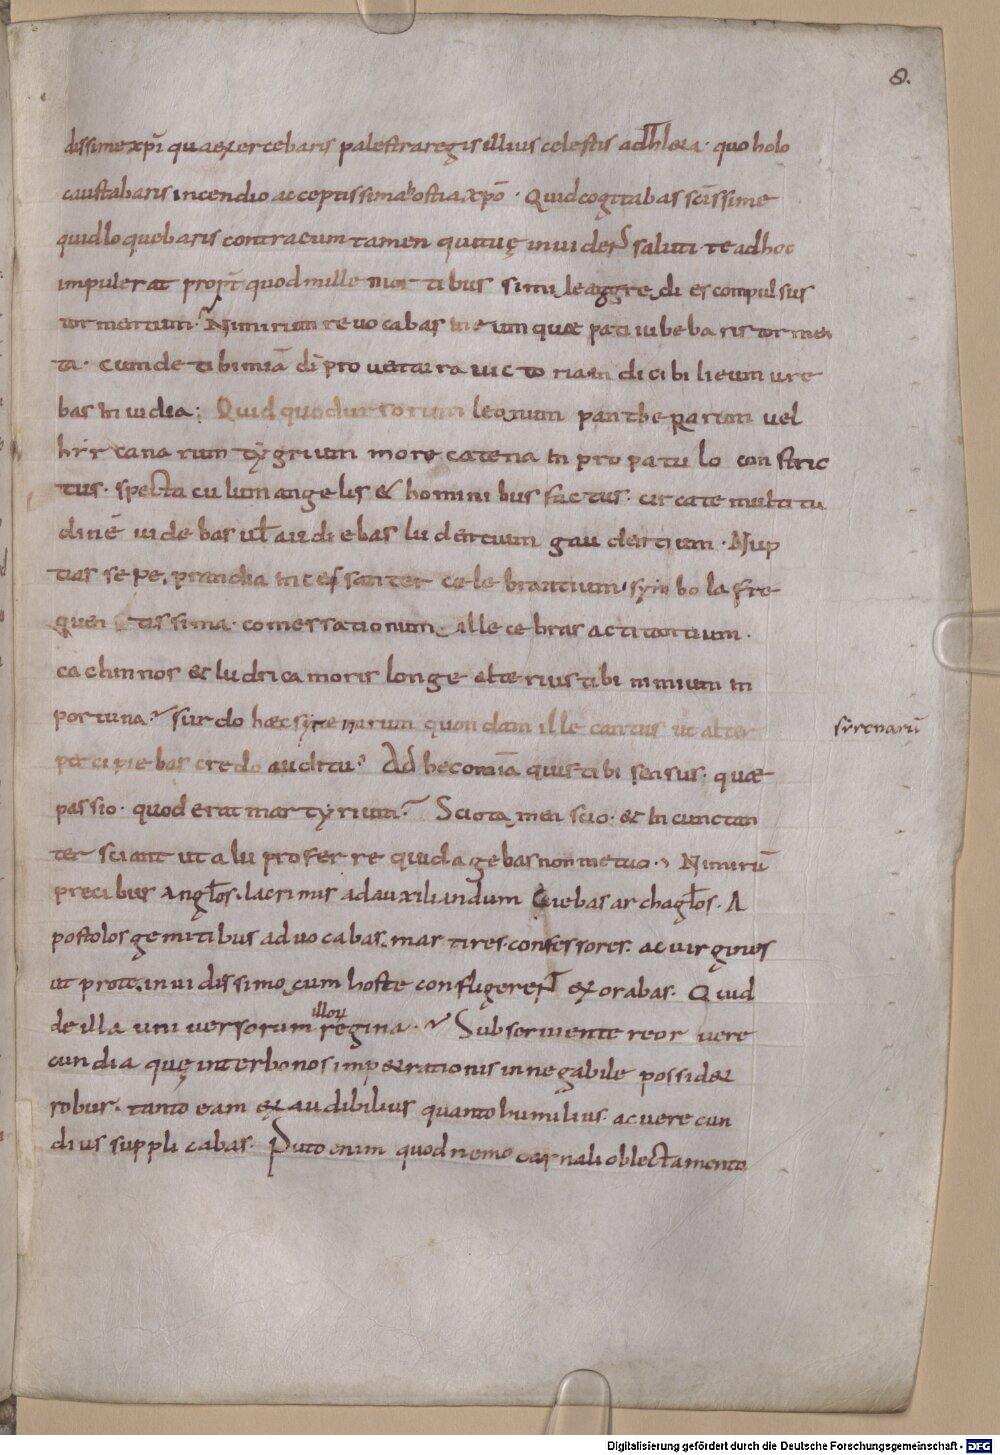 8.
dissime xp̄i qua exercebaris palestra regis illius celestis adthleta· quo holo
caustabaris incendio acceptissima hostia xp̄o· Quid cogitabas scīssime
quid loquebaris contra eum tamen qui tuę inuideN̄S saluti te ad hoc
impulerat propt̄ quod mille mortibus simul eggredi es compulsus
tormentum·? Nimirum reuocabas in eum quae pati iubebaris tormen
ta· cum de tibi miā dī prouentura uictoria indicibili eum ure
bas inuidia; Quid quod ursorum leonum pantherarum uel
hircanarum tygrium more catena in propatulo constric
tus· spectaculum angelis & hominibus factus· circa te multitu
dinē uidebas ul̄ audiebas ludentium gaudentium· Nup
tias sepe, prandia incessanter celebrantium, symbola fre
quentissima· comessationum, illecebras actitantium·
cachinnos & ludrica moris longe alterius tibi nimium in
portuna? surdo haec syrenarum quondam ille cantus ut alter
percipiebas credo auditu? Ad hec omīa quis tibi sensus· quae
passio· quod erat martyrium? Scio tamen scio· & incunctan
ter sciant ut alii proferre quid agebas non metuo·, Nimirū
precibus angl̄os, lacrimis ad auxiliandum Ciebas archagl̄os· A
postolos gemitibus aduocabas, martires, confessores· ac uirgines
ut pro te, inuidissimo cum hoste confligereN̄T exorabas· Quid
de illa uniuersorum regina·?
illoꝝ
Subseruiente reor uere
cundia quę inter bonos imperationis innegabile possidet
robur· tanto eam exaudibilius quanto humilius· ac uerecun
dius supplicabas· Puto enim quod nemo carnali oblectamento
syrenarū
Digitalisierung gefördert durch die Deutsche Forschungsgemeinschaft - DFG